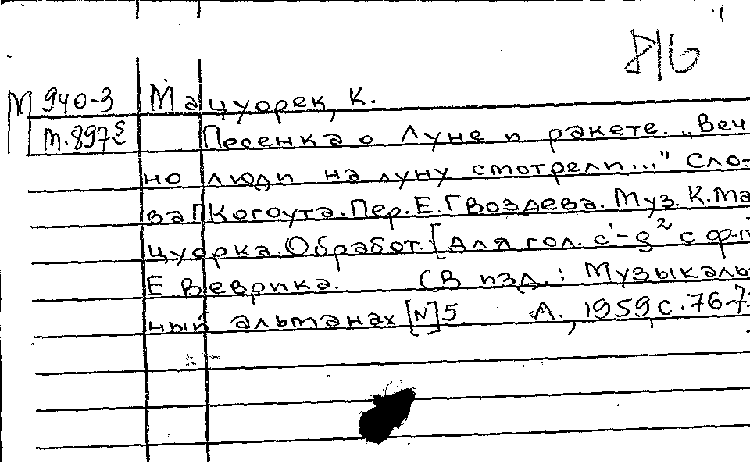 816
М 940-3 Мацуорек, К.
т.897 Песенка о Луне и ракете. „Веч
но люди на луну смотрели..." Сло-
ва П Когоута. Пер. Е. Гвоздева. Муз. К. Ма
цуорка. Обработ. [Для гол. c¹-g² с ф-п
Е Веврика. (В изд.: Музыкаль
ный альманах [N]5 Л., 1959, с. 76-7